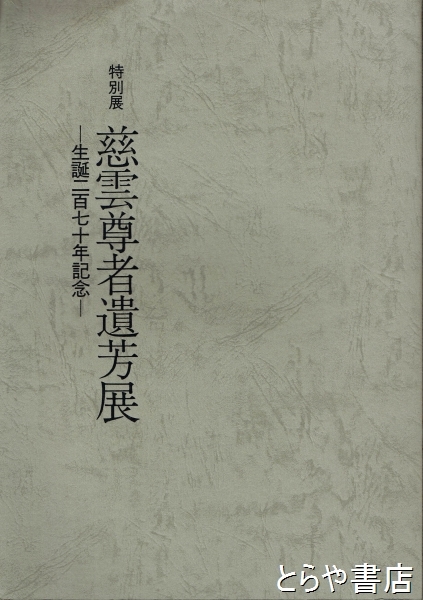 特別展
慈雲尊者遺芳展
―生誕二百七十年記念―
とらや書店